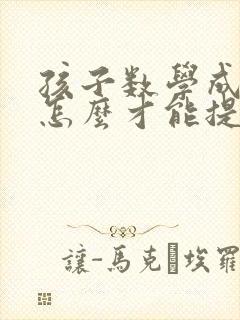 孩子数學成
怎麼才能提
讓-馬克·埃羅